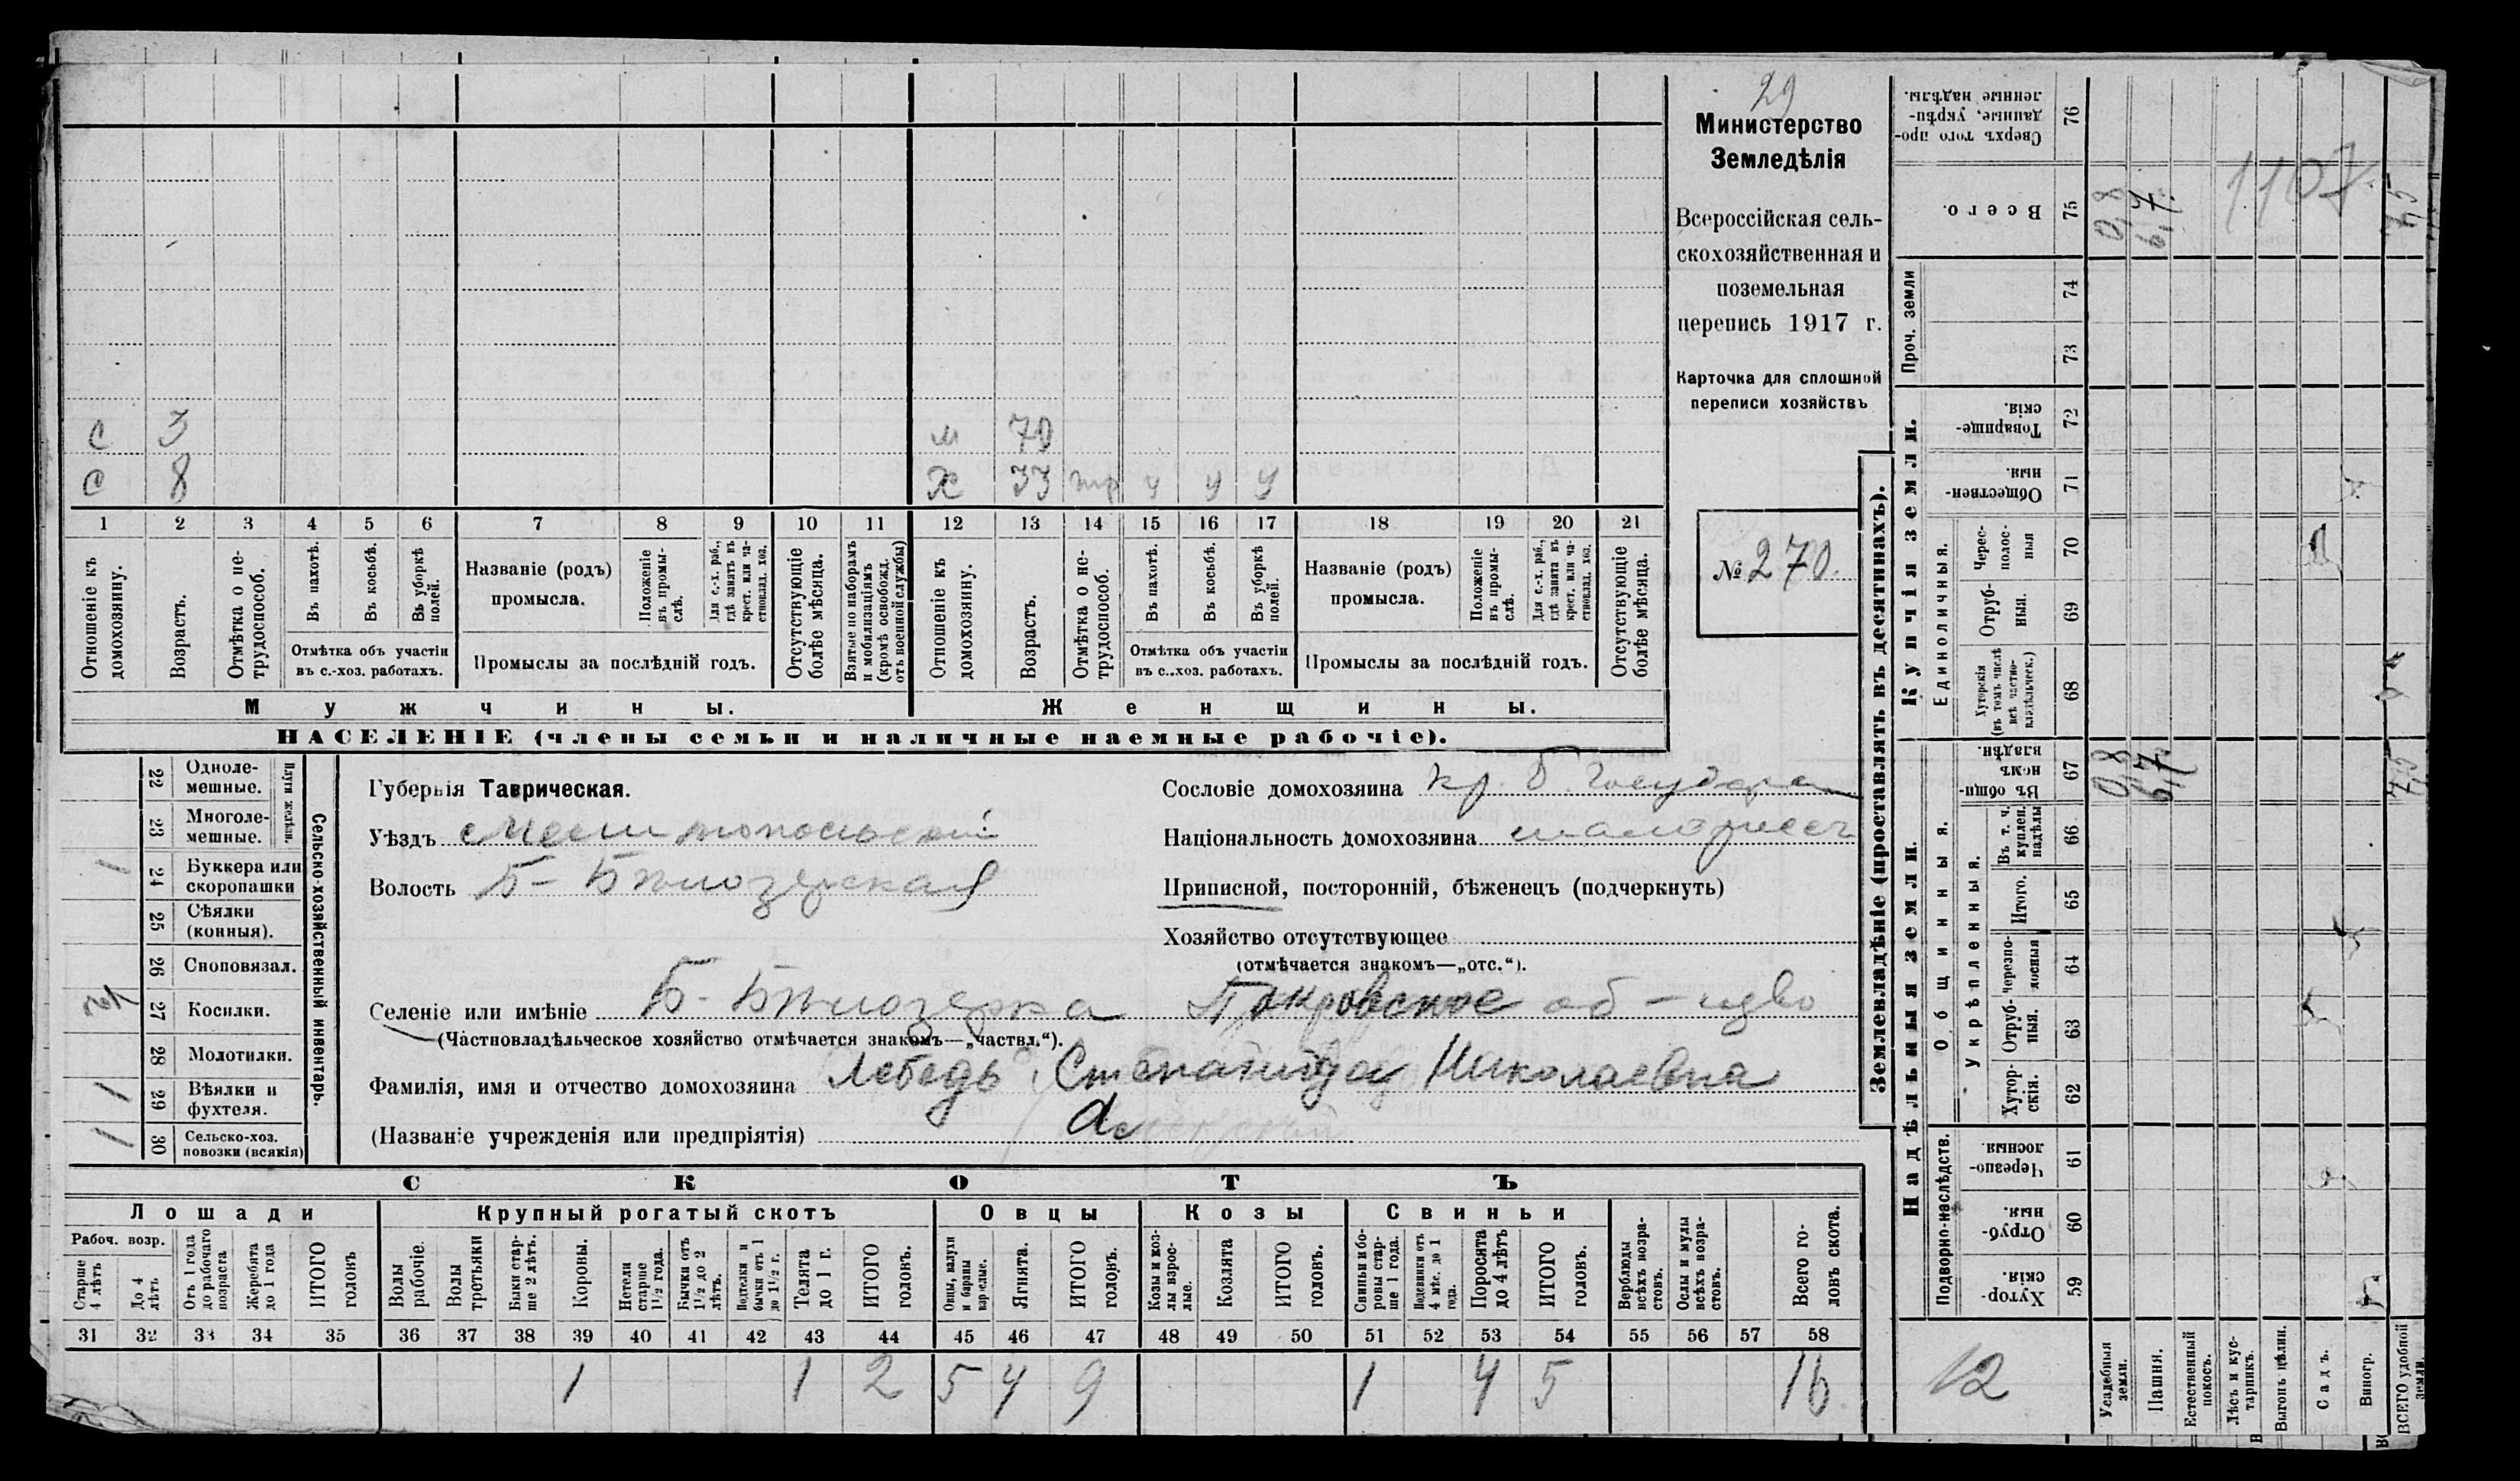 29
Министерство
Земледѣлія
Всероссійская сель-
скохозяйственная и
поземельная
перепись 1917 г.
Карточка для сплошной
переписи хозяйствъ
№ 270.
с 3 м 70
с 8 Х 33 у у у
1 2 3 4 5 6 7 8 9 10 11 12 13 14 15 16 17 18 19 20 21
Отношеніе къ домохозяину.
Возрастъ.
Отмѣтка о не-трудоспособ.
Въ пахотѣ.
Въ косьбѣ.
Въ уборкѣ полей.
Отмѣтка объ участіи
въ с.-хоз. работахъ.
Названіе (родъ)
промысла.
Положеніе въ промы-слѣ.
Для с.-х. раб., гдѣ занятъ въ крест. или ча-стновлад. хоз.
Промыслы за послѣдній годъ.
Отсутствующіе болѣе мѣсяца.
Взятые по наборамъ и мобилизаціямъ (кромѣ освобожд. отъ военной службы)
Отношеніе къ домохозяину.
Возрастъ.
Отмѣтка о не-трудоспособ.
Въ пахотѣ.
Въ косьбѣ.
Въ уборкѣ полей.
Отмѣтка объ участіи
въ с.-хоз. работахъ.
Названіе (родъ)
промысла.
Положеніе въ промы-слѣ.
Для с.-х. раб., гдѣ занята въ крест. или ча-стновлад. хоз.
Промыслы за послѣдній годъ.
Отсутствующіе болѣе мѣсяца.
Мужчины. Женщины.
НАСЕЛЕНІЕ (члены семьи и наличные наемные рабочіе).
Сельско-хозяйственный инвентарь.
Плуги желѣзн.
22 Одноле-мешные.
23 Многоле-мешные.
1 24 Буккера или скоропашки
25 Сѣялки (конныя).
26 Сноповязал.
27 Косилки.
28 Молотилки.
1 29 Вѣялки и фухтеля.
1 30 Сельско-хоз. повозки (всякія)
Губернія Таврическая.
Уѣздъ Мелитопольскій
Волость Б-Бѣлозерская
Сословіе домохозяина кр. б. государ
Національность домохозяина малоросс
Приписной, посторонній, бѣженецъ (подчеркнуть)
Хозяйство отсутствующее
(отмѣчается знакомъ—„отс.“).
Селеніе или имѣніе Б-Бѣлозерка Покровское об-щво
(Частновладѣльческое хозяйство отмѣчается знакомъ—„частвл.“).
Фамилія, имя и отчество домохозяина Лебедь Степанида Николаевна
(Названіе учрежденія или предпріятія)
СКОТЪ
Лошади Крупный рогатый скотъ Овцы Козы Свиньи
Рабоч. возр.
Старше 4 лѣтъ
До 4 лѣтъ
Отъ 1 года до рабочаго возраста
Жеребята до 1 года
ИТОГО головъ
Волы рабочіе.
Волы третьяки
Быки стар-ше 2 лѣтъ.
Коровы.
Нетели старше 1½ года.
Бычки отъ 1½ до 2 лѣтъ.
Подтелки и бычки отъ 1 до 1½ г.
Телята до 1 г.
ИТОГО головъ.
Овцы, валухи и бараны взрослые.
Ягнята.
ИТОГО головъ.
Козы и коз-лы взрос-лые.
Козлята
ИТОГО головъ.
Свиньи и бо-ровы стар-ше 1 года.
Подсвинки отъ 4 мѣс. до 1 года.
Поросята до 4 лѣтъ
ИТОГО головъ.
Верблюды всѣхъ возра-стовъ.
Ослы и мулы всѣхъ возра-стовъ.
Всего го-ловъ скота.
31 32 33 34 35 36 37 38 39 40 41 42 43 44 45 46 47 48 49 50 51 52 53 54 55 56 57 58
1 1 2 5 4 9 1 4 5 16
Землевладѣніе (проставлять въ десятинахъ).
Надѣльныя земли. Купчія земли. Проч. земли
Подворно-наслѣдств.
Общинныя.
Укрѣпленныя.
Единоличныя.
59 Хутор-скія
60 Отруб-ныя.
61 Черезпо-лосныя
62 Хутор-скія.
63 Отруб-ныя.
64 черезпо-лосныя
65 Итого.
66 Въ т. ч. куплен. надѣлы
67 Въ общи-номъ владѣн. 0,8 6,7 7,5
68 Хуторскія (въ томъ числѣ всѣ частно-владѣльческ.)
69 Отруб-ныя.
70 Черес-полос-ныя
71 Обществен-ныя.
72 Товарище-скія.
73
74
75 Всего. 0,8 6,7 7,5
76 Сверхъ того про-данные, укрѣп-ленные надѣлы.
1107
12
Усадебныя земли.
Пашня.
Естественный покосъ.
Лѣсъ и кус-тарникъ.
Выгонъ цѣлин.
Садъ.
Виногр.
ВСЕГО удобной земли.